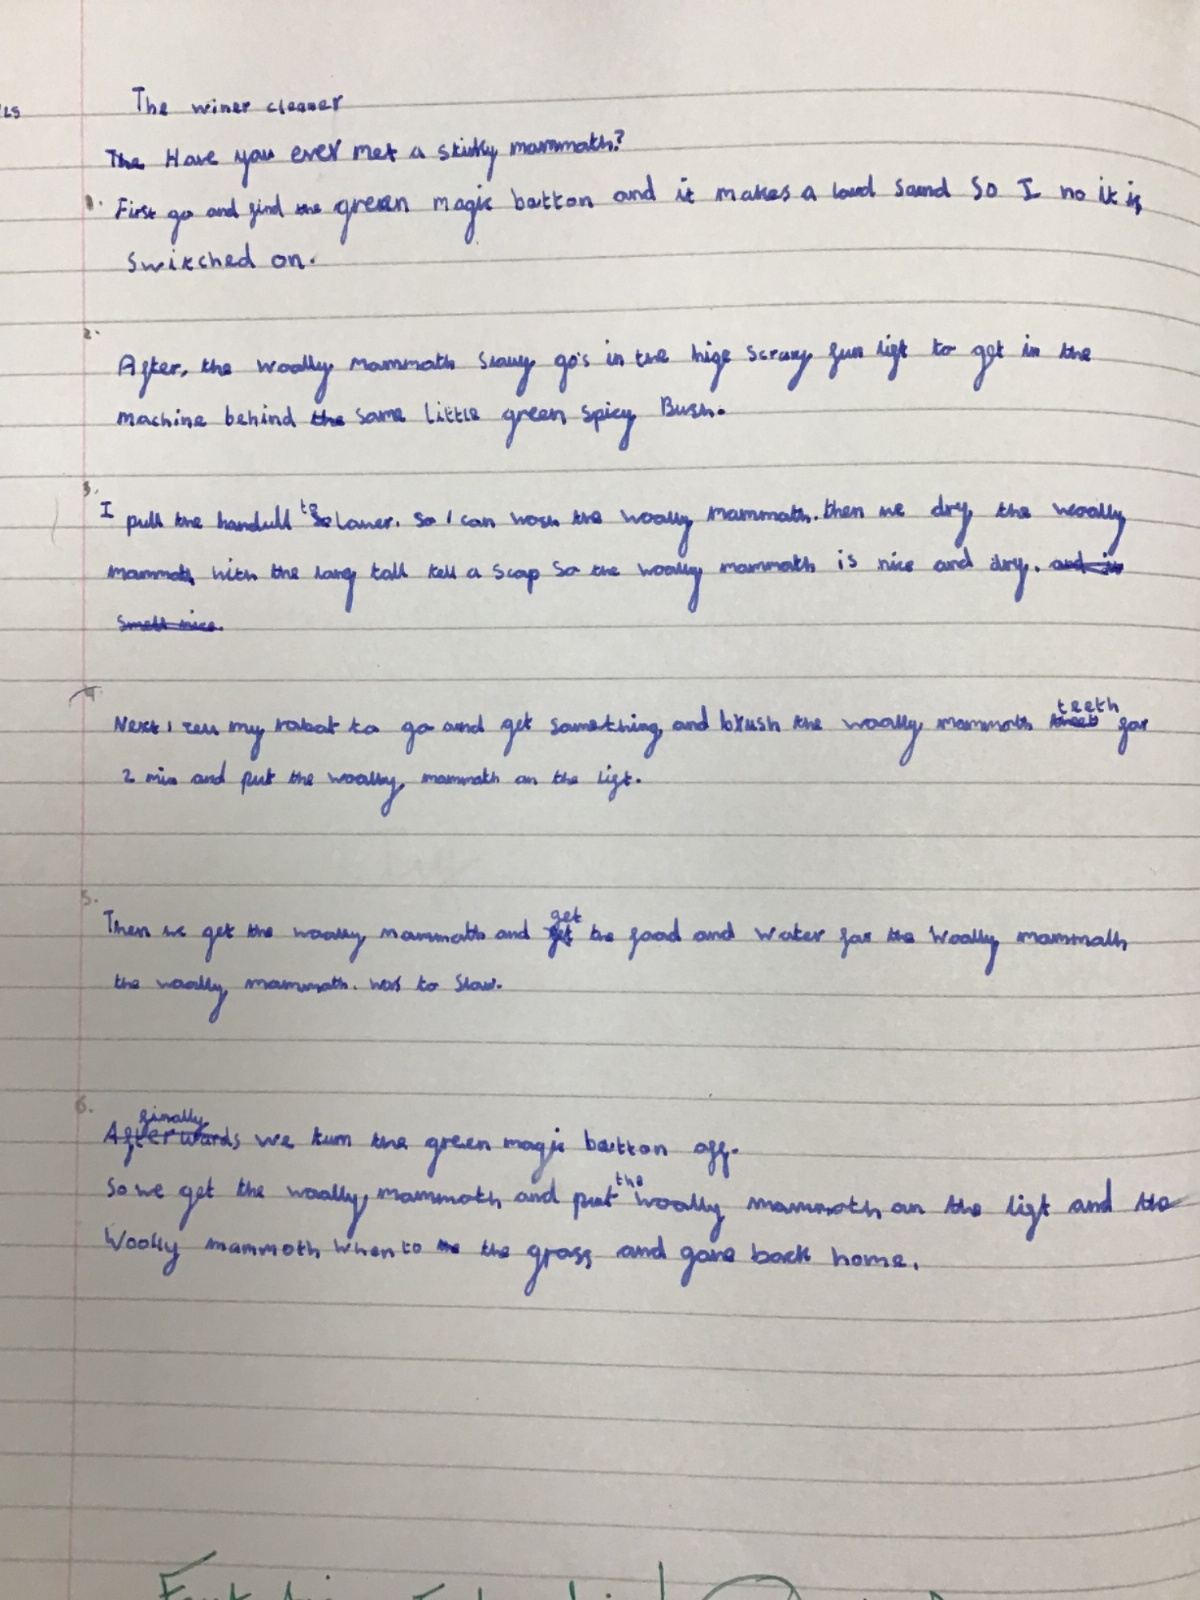 The winer cleaner
The Have you ever met a stinky mammoth?
1. First go and find the green magic button and it makes a loud sound so I no it is
switched on.
2.
After, the woolly mammoth slowy go's in the hige scrary fun lift to get in the
machine behind the same little green spicy Bush.
3.
I pull the handull to laver. So I can wosh the woolly mammoth. then we dry the woolly
mammoth with the larg tall tell a scop so the woolly mammoth is nice and dry. and is
smell nice.
4.
Next I tell my robot to go and get something and brush the woolly mammoth teeth for
2 min and put the woolly mammoth on the lift.
5.
Then we get the woolly mammoth and get the food and water for the woolly mammoth
the woolly mammoth. was to slow.
6.
Afterwards finally we turn the green magic button off.
So we get the woolly mammoth and put the woolly mammoth on the lift and the
Woolly mammoth when to the the grass and gone back home.